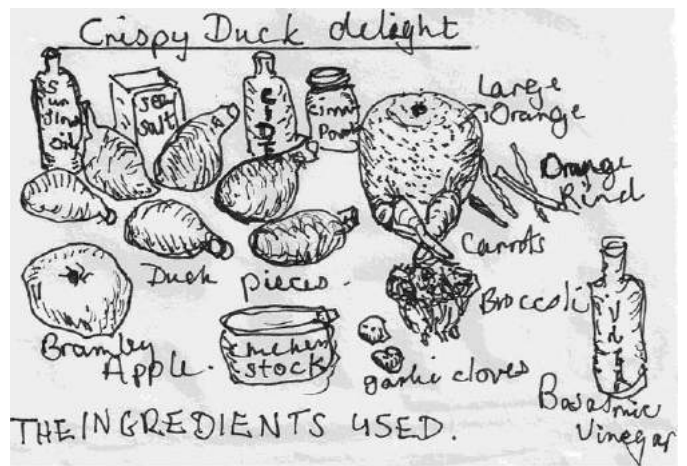 Crispy Duck delight
Oil
Sea
Salt
CIDE
Large
Orange
Orange
Rind
Carrots
Duck pieces.
Broccoli
Bramley
Apple.
chicken
stock
garlic cloves
Basalmic
Vinegar
THE INGREDIENTS USED.